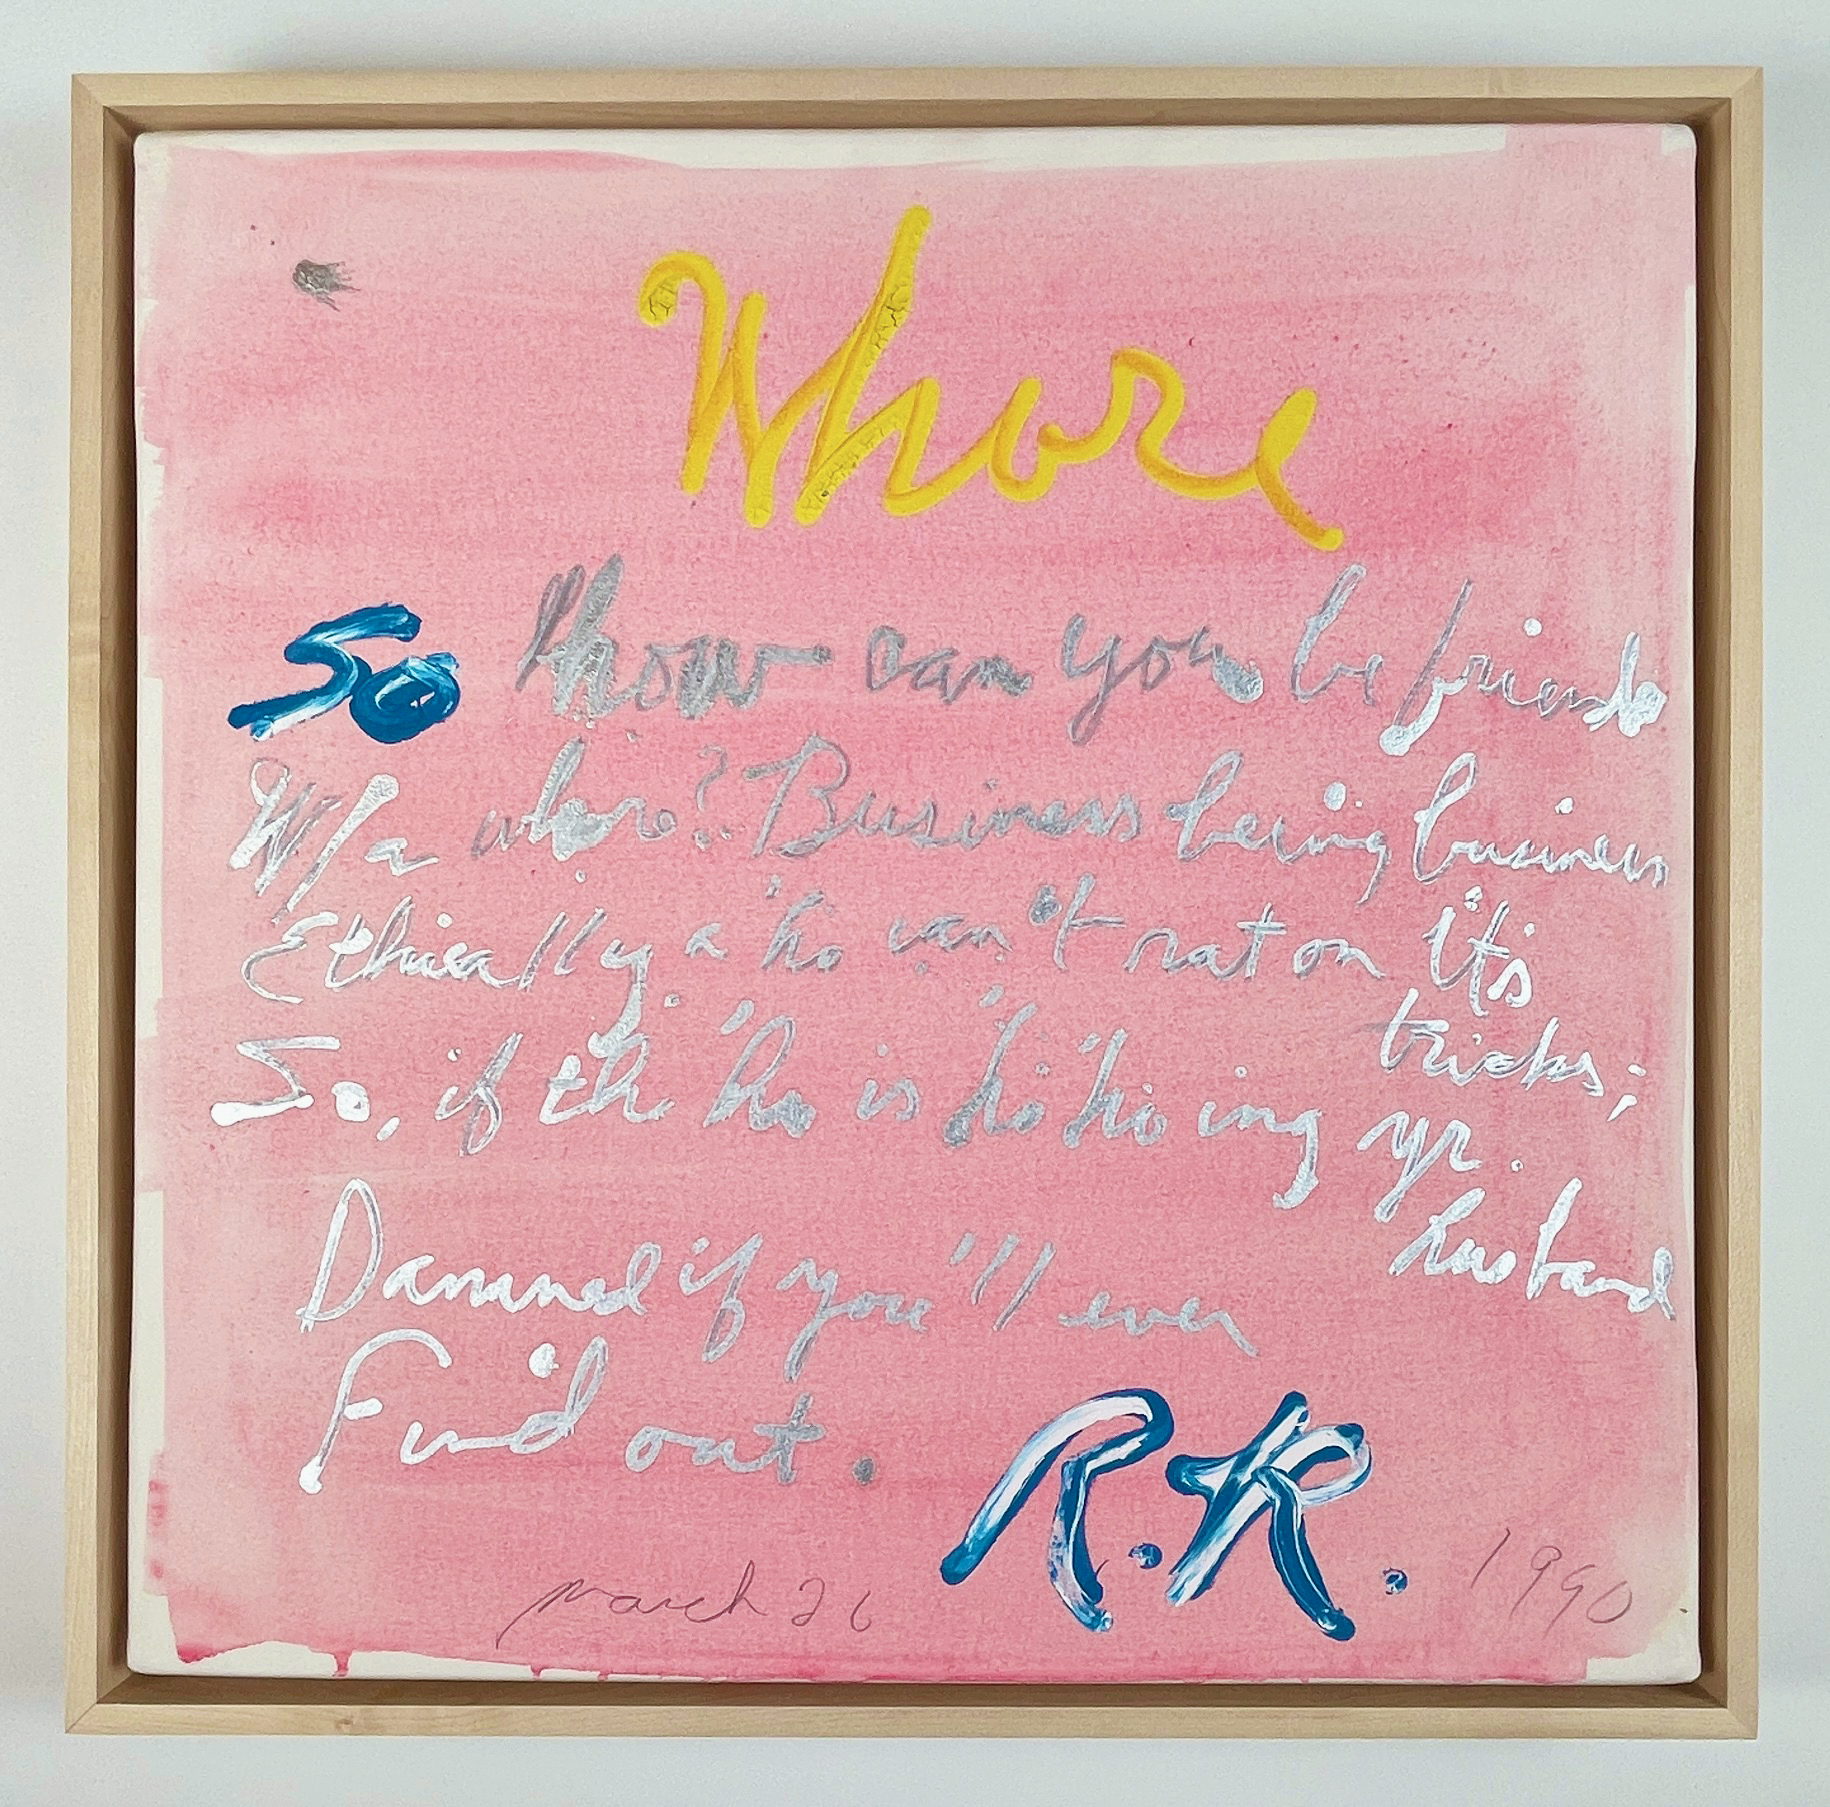 Whore
So how can you be friends
W/a whore? Business being business
Ethically a 'ho can't rat on it's
tricks;
So, if th 'ho is 'ho 'ho ing yr.
husband
Damned if you'll ever
Find out.
R.R.
march 26 1990